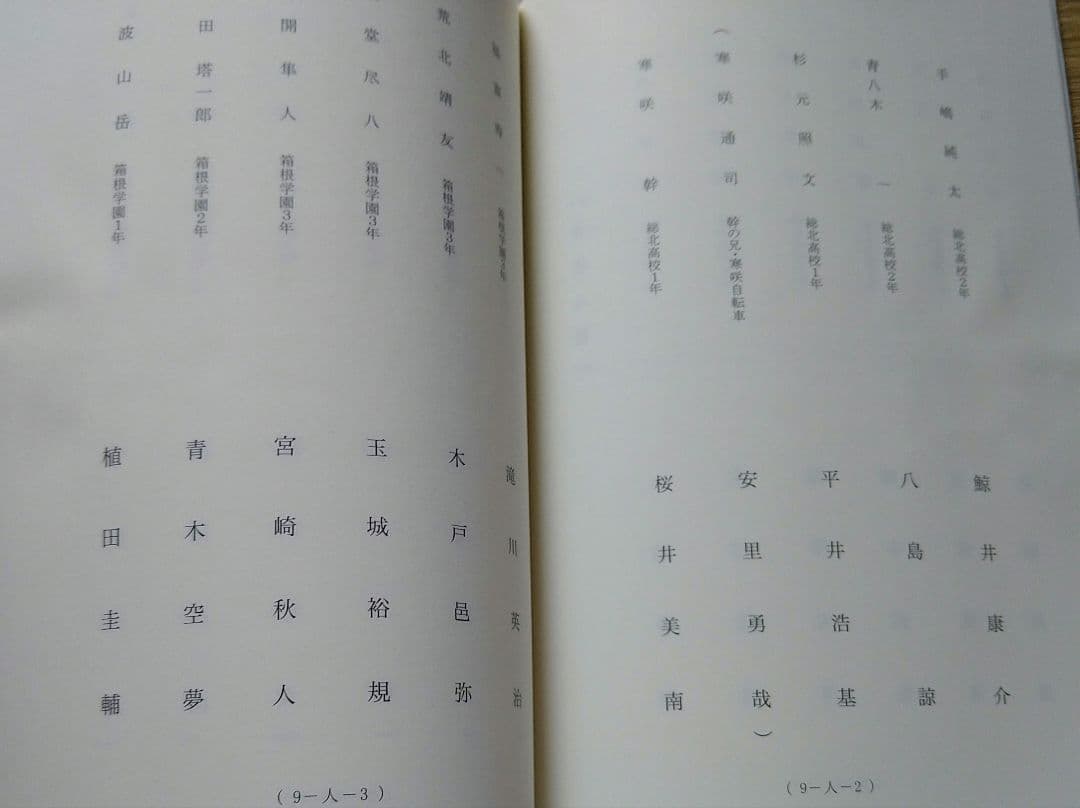 手嶋純太 総北高校2年 鯨井康介
青八木一 総北高校2年 八島諒
杉元照文 総北高校1年 平井浩基
(寒咲通司 幹の兄・寒咲自転車 安里勇哉)
寒咲幹 総北高校1年 桜井美南
(9-人-2)
箱根学園3年 滝川英治
荒北靖友 箱根学園3年 木戸邑弥
堂尽八 箱根学園3年 玉城裕規
開隼人 箱根学園3年 宮崎秋人
田塔一郎 箱根学園2年 青木空夢
波山岳 箱根学園1年 植田圭輔
(9-人-3)